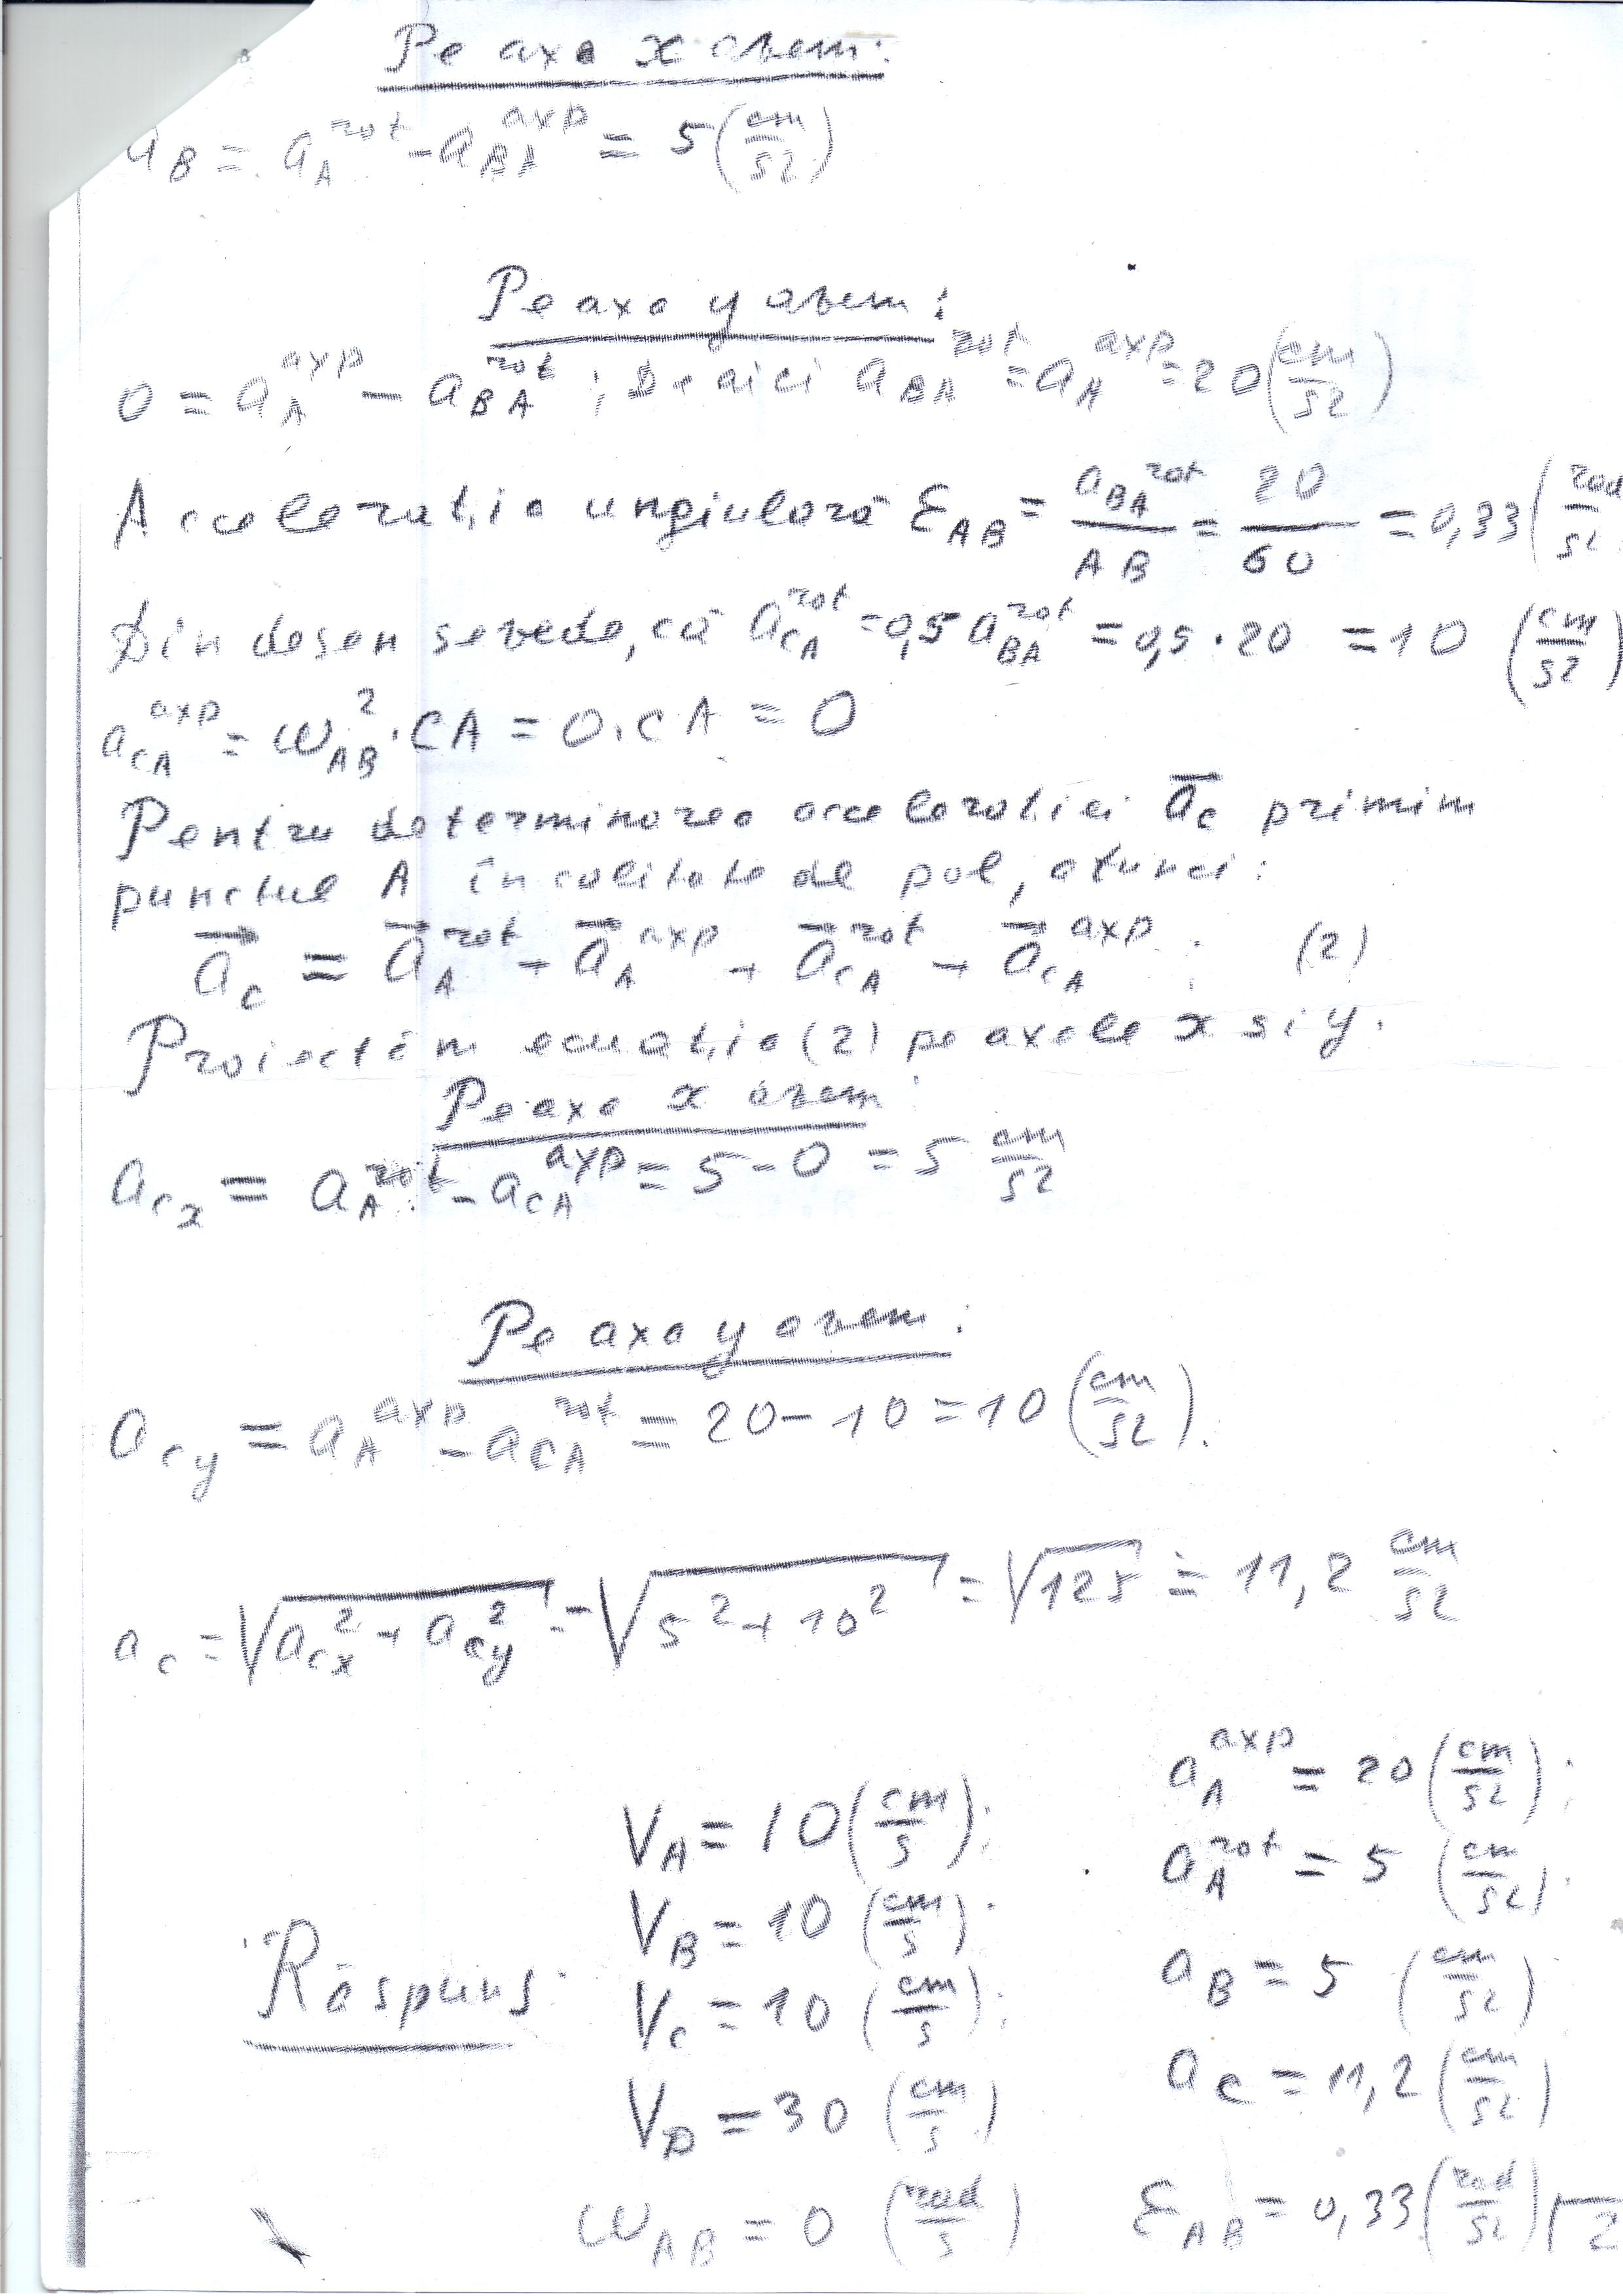 Pe axa x avem:
a_B = a_A^rot - a_BA^axp = 5 (cm/s2)
Pe axa y avem:
0 = a_A^axp - a_BA^rot ; De aici a_BA^rot = a_A^axp = 20 (cm/s2)
Accelerația unghiulară ε_AB = a_BA^rot / AB = 20/60 = 0,33 (rad/s2
Din desen se vede, că a_CA^rot = 0,5 a_BA^rot = 0,5 · 20 = 10 (cm/s2)
a_CA^axp = ω_AB^2 · CA = 0 · CA = 0
Pentru determinarea accelerației a_c primim
punctul A în calitate de pol, atunci:
a_c = a_A^rot + a_A^axp + a_CA^rot + a_CA^axp ; (2)
Proiectăm ecuația (2) pe axele x si y.
Pe axa x avem:
a_cx = a_A^rot - a_CA^axp = 5 - 0 = 5 cm/s2
Pe axa y avem:
a_cy = a_A^axp - a_CA^rot = 20 - 10 = 10 (cm/s2).
a_c = √(a_cx^2 + a_cy^2) = √(5^2 + 10^2) = √125 = 11,2 cm/s2
a_A^axp = 20 (cm/s2);
V_A = 10 (cm/s);
a_A^rot = 5 (cm/s2);
V_B = 10 (cm/s);
Răspuns:
a_B = 5 (cm/s2);
V_c = 10 (cm/s);
a_c = 11,2 (cm/s2)
V_D = 30 (cm/s)
ω_AB = 0 (rad/s)
ε_AB = 0,33 (rad/s2)
2